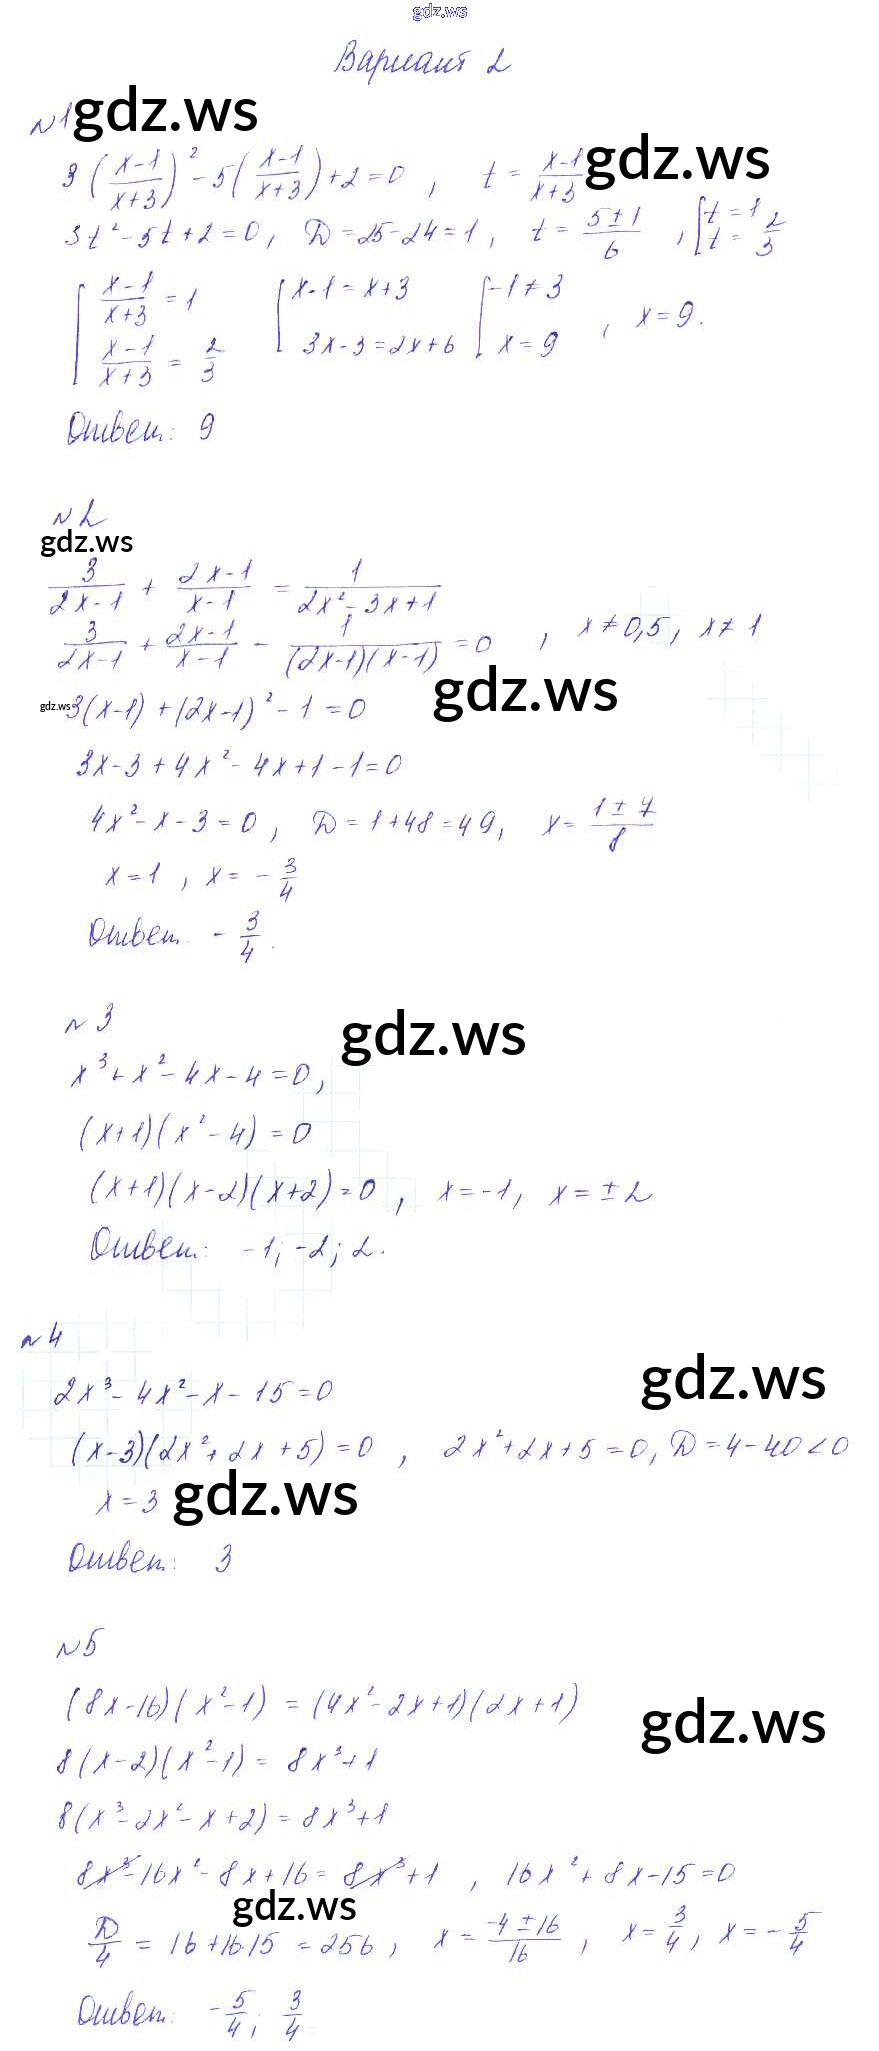 gdz.ws
Вариант 2
№1 gdz.ws
3((x-1)/(x+3))² - 5((x-1)/(x+3)) + 2 = 0 , t = (x-1)/(x+3) gdz.ws
3t² - 5t + 2 = 0, D = 25 - 24 = 1, t = (5±1)/6 , [t = 1 t = 2/3
[(x-1)/(x+3) = 1 [x-1 = x+3 [-1 ≠ 3
(x-1)/(x+3) = 2/3 3x-3 = 2x+6 x = 9 , x = 9.
Ответ: 9
№2
gdz.ws
3/(2x-1) + (2x-1)/(x-1) = 1/(2x²-3x+1)
3/(2x-1) + (2x-1)/(x-1) - 1/((2x-1)(x-1)) = 0 , x ≠ 0,5, x ≠ 1
gdz.ws
gdz.ws 3(x-1) + (2x-1)² - 1 = 0
3x - 3 + 4x² - 4x + 1 - 1 = 0
4x² - x - 3 = 0 , D = 1 + 48 = 49, x = (1±7)/8
x = 1 , x = -3/4
Ответ. -3/4.
№3
gdz.ws
x³ + x² - 4x - 4 = 0,
(x+1)(x²-4) = 0
(x+1)(x-2)(x+2) = 0 , x = -1, x = ±2
Ответ: -1; -2; 2.
№4
gdz.ws
2x³ - 4x² - x - 15 = 0
(x-3)(2x²+2x+5) = 0 , 2x²+2x+5 = 0, D = 4-40 < 0
x = 3 gdz.ws
Ответ: 3
№5
(8x-16)(x²-1) = (4x²-2x+1)(2x+1)
gdz.ws
8(x-2)(x²-1) = 8x³+1
8(x³-2x²-x+2) = 8x³+1
8x³-16x²-8x+16 = 8x³+1 , 16x²+8x-15 = 0
gdz.ws
D/4 = 16+16·15 = 256, x = (-4±16)/16 , x = 3/4, x = -5/4
Ответ: -5/4; 3/4.